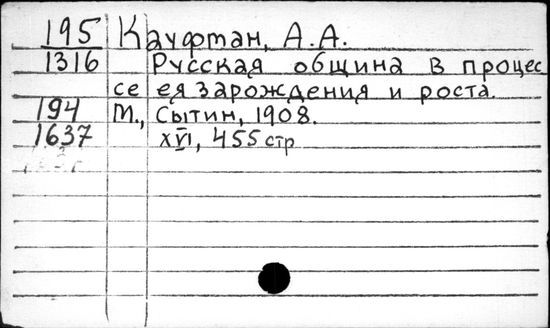 195 Кауфман, А.А.
1316 Русская община в процес
се ея зарождения и роста.
194 М., Сытин, 1908.
1637 XVI, 455 стр